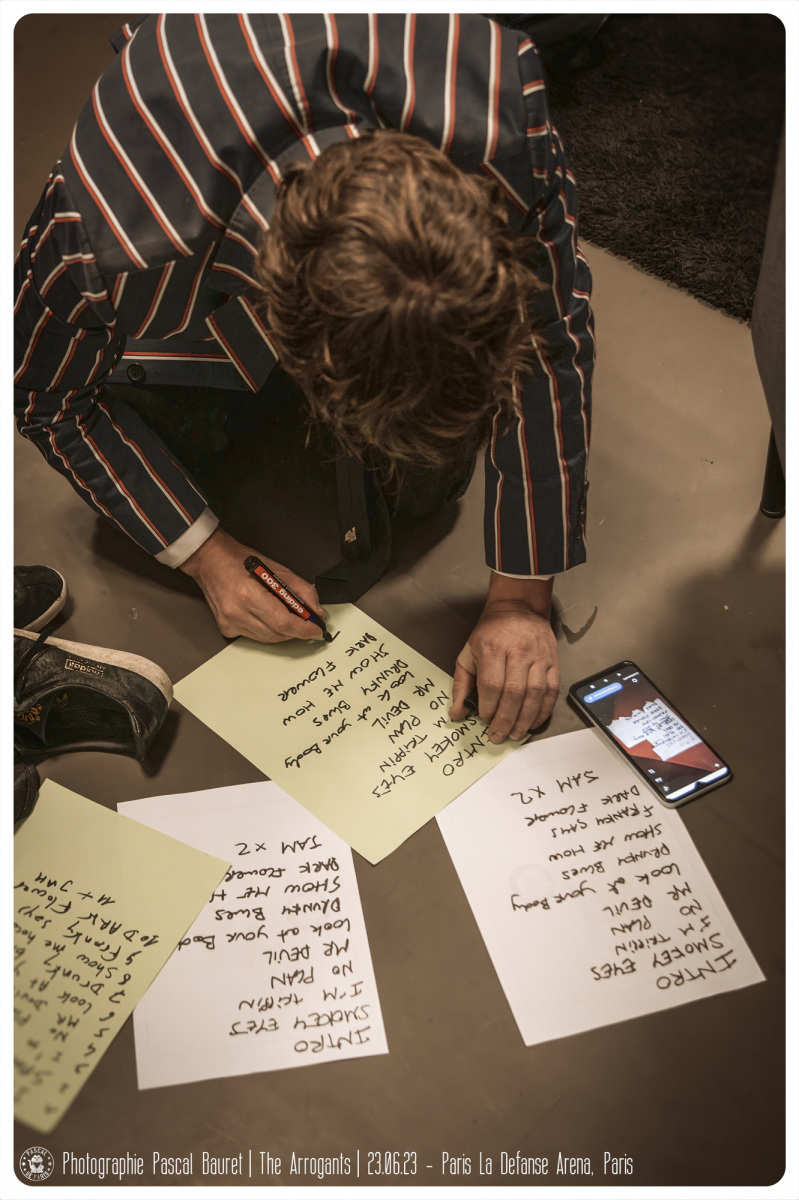 edding 300
INTRO
SMOKEY EYES
I'M TRIPPIN
NO PLAN
MR DEVIL
LOOK at your Body
DRUNKY BLUES
SHOW ME HOW
DARK FLOWER
INTRO
SMOKEY EYES
I'M TRIPPIN
NO PLAN
MR DEVIL
LOOK at your Body
DRUNKY BLUES
SHOW ME HOW
FRANKY SAYS
DARK FLOWER
JAM X2
INTRO
SMOKEY EYES
I'M TRIPPIN
NO PLAN
MR DEVIL
LOOK at your Bod
DRUNKY BLUES
SHOW ME H
DARK FLOWER
JAM X2
I'm
No
MR Devil
6 Look At
7 Drunky
8 Show me how
9 Franky says
10 DARK Flower
11 + JAM
adidas
Photographie Pascal Bauret | The Arrogants | 23.06.23 - Paris La Defanse Arena, Paris